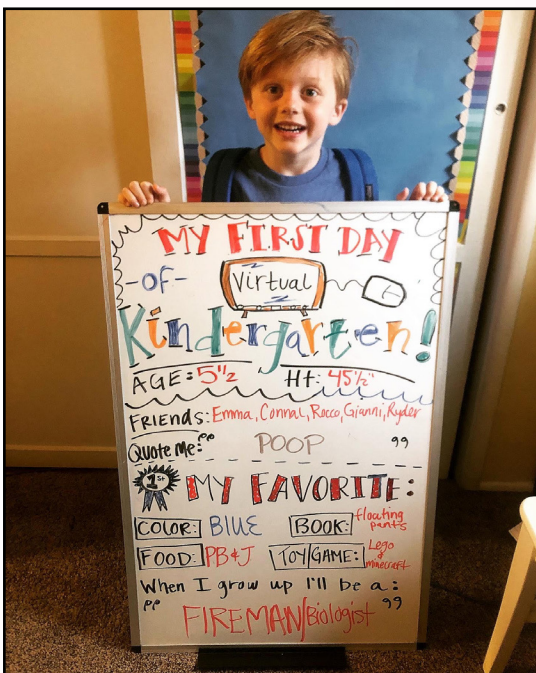 MY FIRST DAY
-OF- Virtual
Kindergarten!
AGE: 5"2 Ht: 45½"
FRIENDS: Emma, Connal, Rocco, Gianni, Ryder
Quote Me: " POOP "
1st MY FAVORITE:
COLOR: BLUE BOOK: floating pants
FOOD: PB&J TOY/GAME: Lego minecraft
When I grow up I'll be a:
" FIREMAN/Biologist "